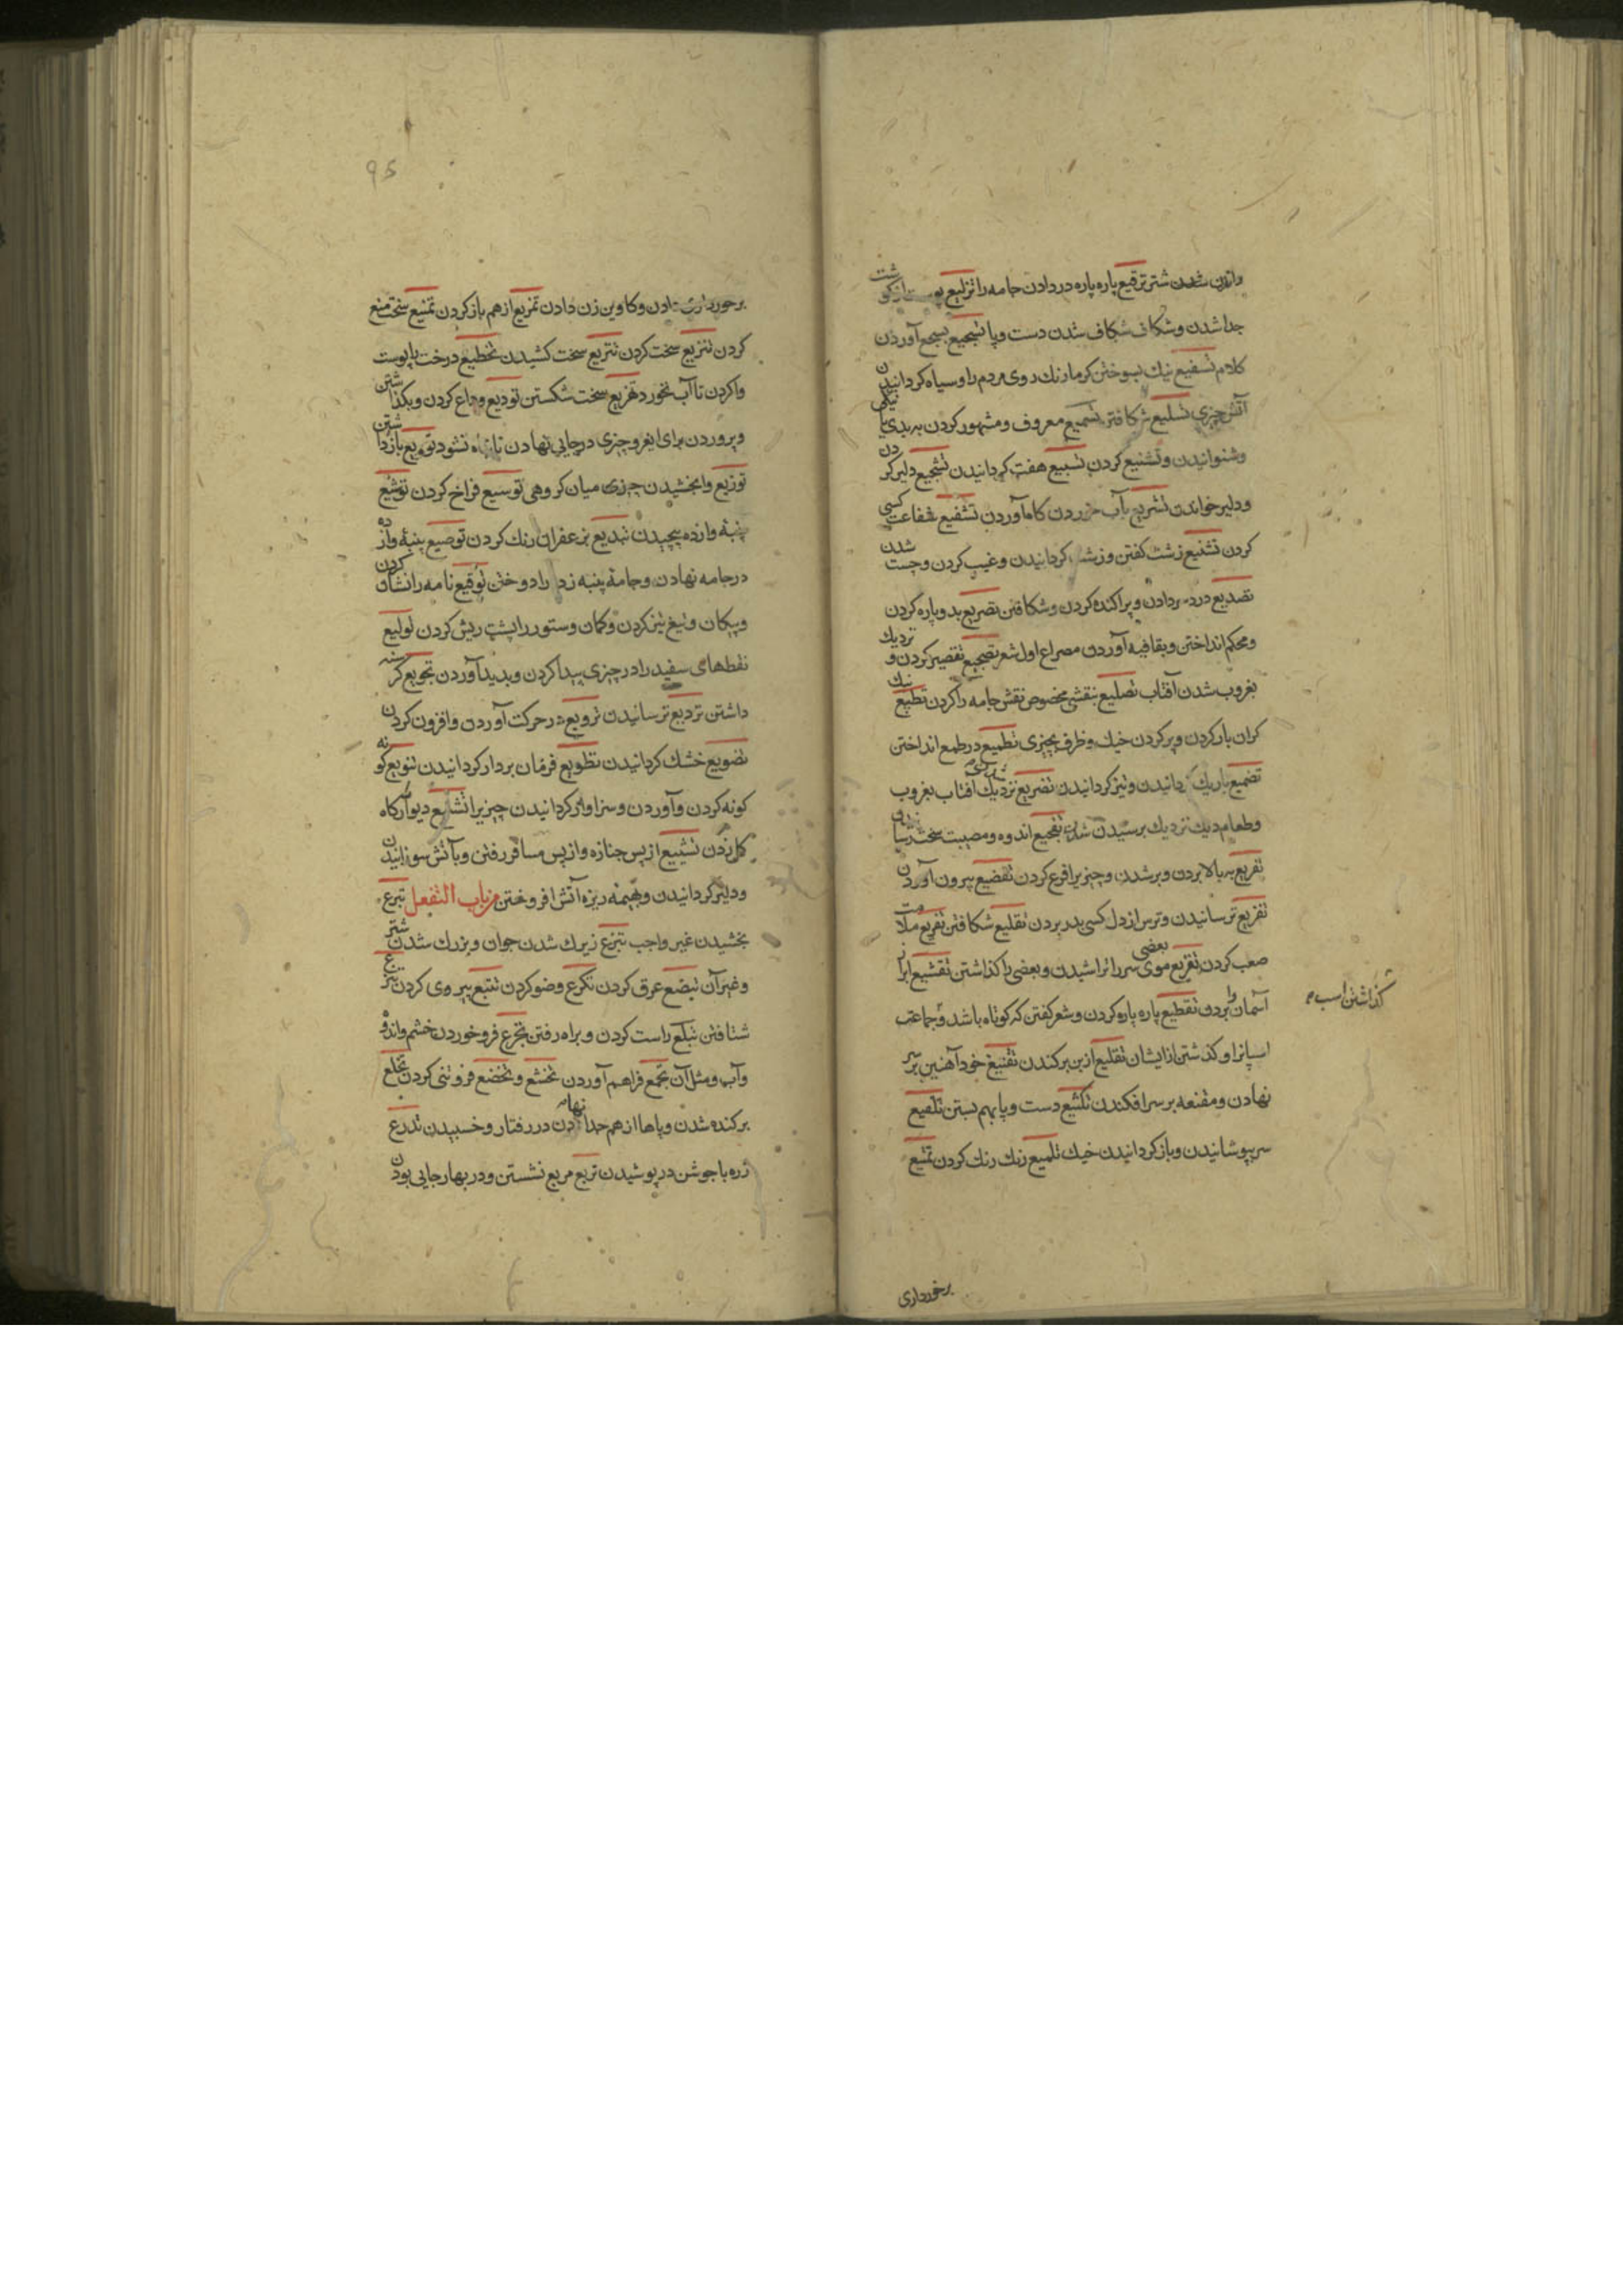 وازدن شدن شتر ترقیع پاره پاره در دادن جامه را تزلیع پوست از کوشت
جدا شدن و شکاف شکاف شدن دست و پا تسجیع بسجع آوردن
کلام تسفیع نیک بسوختن کرما رنک روی مردم را و سیاه کردانیدن
آتش چیزی تسلیع شکافتن تسمیع معروف و مشهور کردن به بدی یا نیکی
و شنوانیدن و تشنیع کردن تسبیع هفت کردانیدن تشجیع دلیر کردن
و دلیر خواندن تشریع بآب آوردن تشفیع شفاعت کسی
کردن تشنیع زشت کفتن و زشت کردانیدن و غیب کردن و چست شدن
تصدیع درد سر دادن و پراکنده کردن و شکافتن تصریع بدو پاره کردن
و محکم انداختن و بقافیه آوردن مصراع اول شعر تضجیع تقصیر کردن و نزدیک
بغروب شدن آفتاب تضلیع بنقشی مخصوص نقش جامه را کردن تطبیع نیک
کران بار کردن و پر کردن خیک و ظرف بچیزی تطمیع در طمع انداختن
باریک کردانیدن و تیز کردانیدن تضریع نزدیک آفتاب بغروب
و طعام دیک نزدیک برسیدن شدن تفجیع اندوه و مصیبت سخت
تفریع به بالا بردن و بر شدن و چیزیرا فرع کردن تفضیع بیرون آوردن
تفزیع ترسانیدن و ترس از دل کسی بدر بردن تفلیع شکافتن تقریع ملامت
صعب کردن تقزیع موی سر را بعضی تراشیدن و بعضی را کذاشتن تقشیع ابر از
آسمان وا بردن تقطیع پاره پاره کردن و شعر کفتن که کوتاه باشد و جماعت
کذاشتن اسب
اسپانرا و کذشتن از ایشان تقلیع از بن برکندن تقنیع خود آهنین بر سر
نهادن و مقنعه بر سر افکندن تکتیع دست و پا بهم بستن تلفیع
سر بپوشانیدن و باز کردانیدن خیک تلمیع رنک رنک کردن تمتیع
برخورداری
95
برخورداری دادن و کاوین زن دادن تمزیع از هم باز کردن تمنیع سخت منع
کردن تنزیع سخت کردن تنزیع سخت کشیدن تخطیع درخت با پوست
وا کردن تا آب نخورد تهزیع سخت شکستن تودیع وداع کردن و بکذاشتن
و پروردن برای ایغر و چیزی در جایی نهادن تا تباه نشود توزیع باز داشتن
توزیع وا بخشیدن چیزی میان کروهی توسیع فراخ کردن توشیع
پنبهٔ وازده پیچیدن تبدیع بزعفران رنک کردن توصیع پنبهٔ وازده
در جامه نهادن و جامهٔ پنبه زده را دوختن توقیع نامه را نشان کردن
و پیکان و تیغ تیز کردن و کمان و ستور را پشت ریش کردن تولیع
نقطهای سفید را در چیزی پیدا کردن و پدید آوردن تجویع کرسنه
داشتن تردیع ترسانیدن ترویع در حرکت آوردن و افزون کردن
تضویع خشک کردانیدن تطویع فرمان بردار کردانیدن تنویع کونه
کونه کردن و آوردن و سزاوار کردانیدن چیزیرا تشییع دیوار کاه
کل زدن تشییع از پس جنازه و از پس مسافر رفتن و بآتش سوزانیدن
و دلیر کردانیدن و بهیمه ریزه آتش افروختن من باب التفعل تبرع
بخشیدن غیر واجب تبزع زیرک شدن جوان و بزرک شدن شتر
و غیر آن تبضع عرق کردن تکرع وضو کردن تتبع پیروی کردن تترع
شتافتن تبلع راست کردن و براه رفتن تجرع فرو خوردن خشم و اندوه
و آب و مثل آن تجمع فراهم آوردن تخشع و تخضع فروتنی کردن تخلع
برکنده شدن و پاها از هم جدا نهادن در رفتار و خسبیدن تدرع
زره یا جوشن در پوشیدن تربع مربع نشستن و در بهار جایی بودن